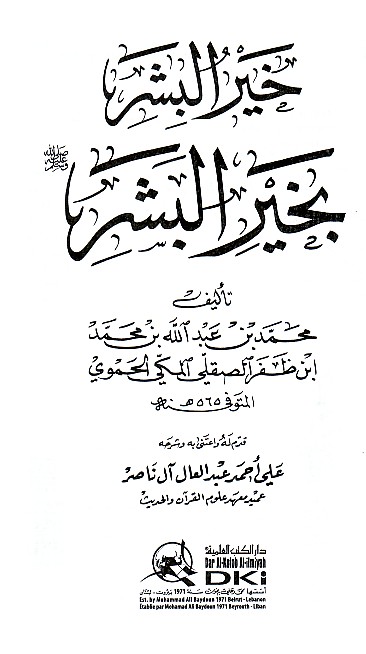 خَيْرُ البِشَرِ
بِخَيْرِ البَشَرِ ﷺ
تأليف
محمد بن عبد الله بن محمد
ابن ظفر الصقلي المكي الحموي
المتوفى ٥٦٥ هـ سنة
قدم له واعتنى به وشرحه
علي أحمد عبد العال آل ناصر
عميد معهد علوم القرآن والحديث
دار الكتب العلمية
Dar Al-Kotob Al-ilmiyah
DKi
أسسها محمد علي بيضون سنة 1971 بيروت - لبنان
Est. by Mohammad Ali Baydoun 1971 Beirut - Lebanon
Établie par Mohamad Ali Baydoun 1971 Beyrouth - Liban